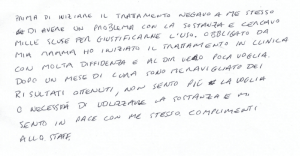 PRIMA DI INIZIARE IL TRATTAMENTO NEGAVO A ME STESSO
DI AVERE UN PROBLEMA CON LA SOSTANZA E CERCAVO
MILLE SCUSE PER GIUSTIFICARNE L'USO. OBBLIGATO DA
MIA MAMMA HO INIZIATO IL TRATTAMENTO IN CLINICA
CON MOLTA DIFFIDENZA E AL DIR VERO POCA VOGLIA.
DOPO UN MESE DI CURA SONO MERAVIGLIATO DEI
RISULTATI OTTENUTI, NON SENTO PIÙ LA VOGLIA
O NECESSITÀ DI UTILIZZARE LA SOSTANZA E MI
SENTO IN PACE CON ME STESSO. COMPLIMENTI
ALLO STAFF